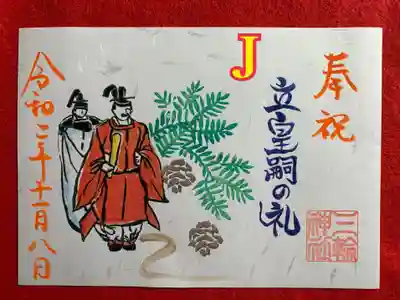 奉祝
J
立皇嗣の礼
令和二年十一月八日
三輪神社